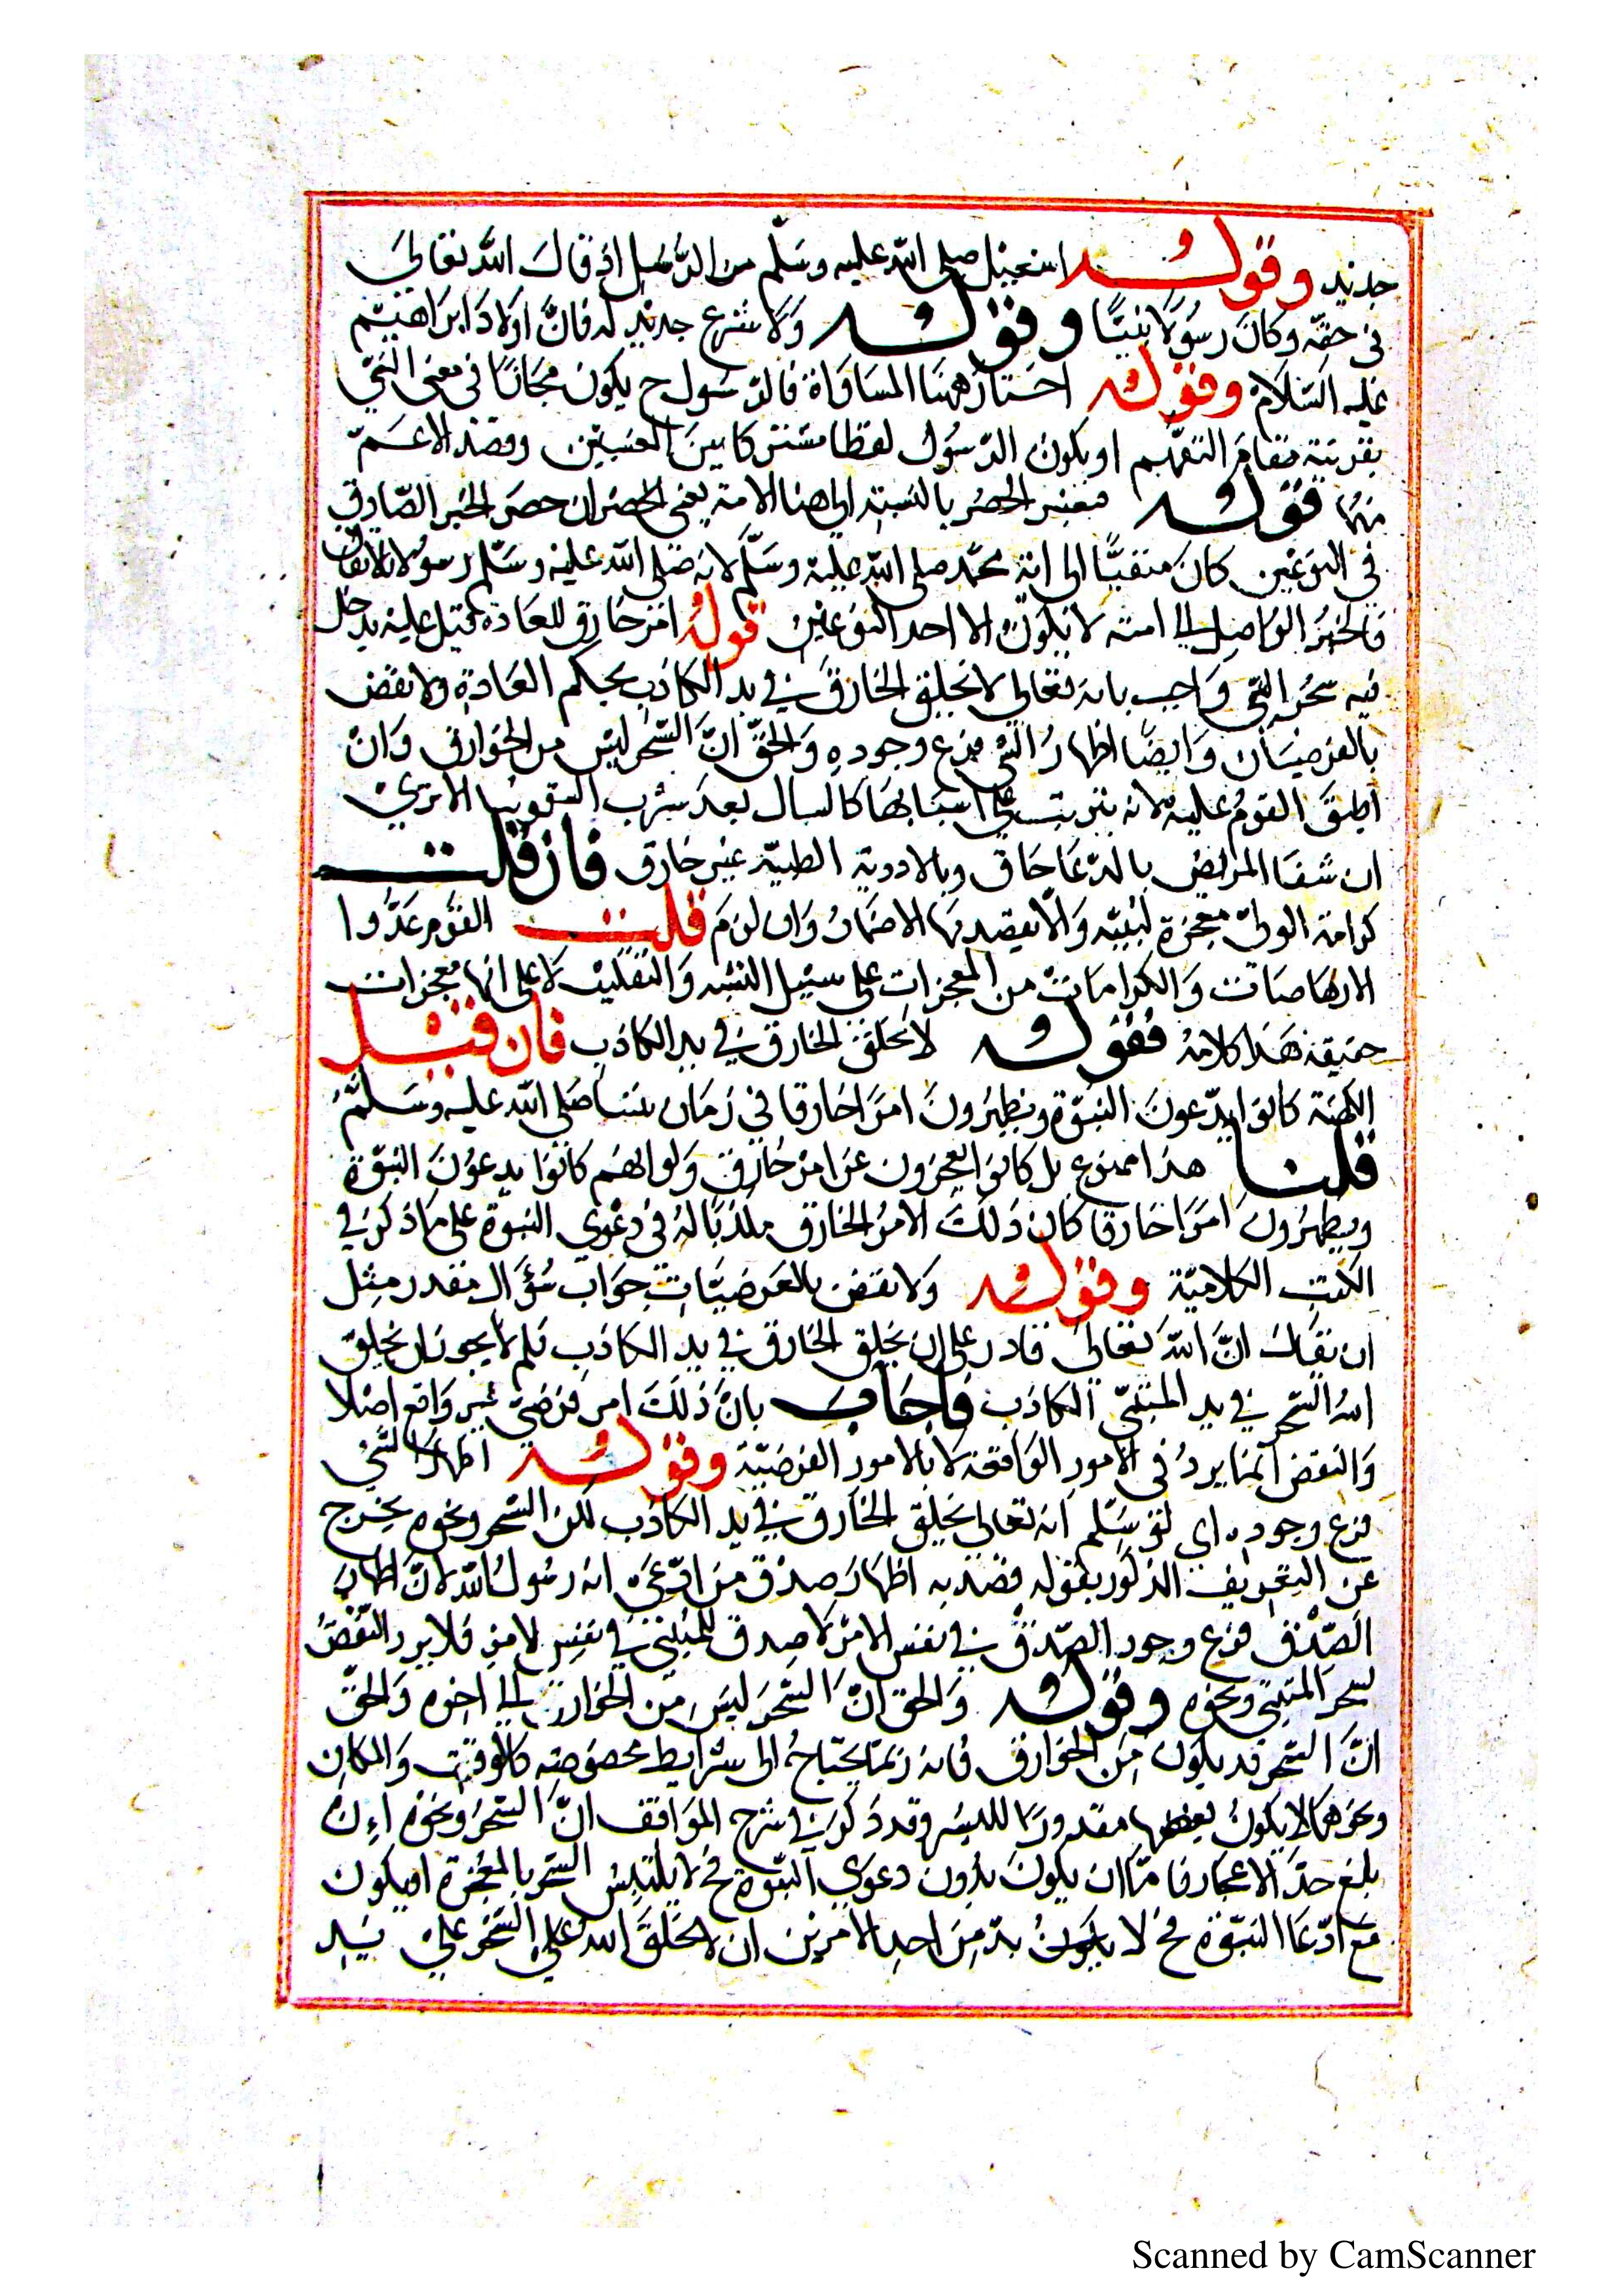 جديد وقوله اسمعيل صلى الله عليه وسلم من الرسل اذ قال الله تعالى
فى حقه وكان رسولا نبيا وقوله ولا شرع جديد له فان اولاد ابراهيم
عليه السلام وقوله اختار ههنا المساواة فالرسول ح يكون مجازا فى معنى النبي
بقرينة مقام التفهيم او يكون الرسول لفظا مشتركا بين المعنيين وقصد الاعم
منهما قوله فمعتبر الحصر بالنسبة الى هذا الامة يعنى الحصر ان حصر الخبر الصادق
فى النوعين كان منفيا الى امة محمد صلى الله عليه وسلم لانه صلى الله عليه وسلم رسول
فالخبر الواصل الى امته لا يكون الا احد النوعين قوله امر خارق للعادة قيل عليه يدخل
فيه سحر المتنبي واجيب بانه تعالى لا يخلق الخارق في يد الكاذب بحكم العادة ولا نقض
بالفرضيات وايضا اظهار الشئ فرع وجوده والحق ان السحر ليس من الخوارق وان
اطبق القوم عليه لانه يترتب على اسبابها كالاسهال بعد شرب السقمونيا الا ترى
ان شفا المريض بالدعا خارق وبالادوية الطبية غير خارق فان قلت
كرامة الولى معجزة لنبيه والا يقصد بها الاظهار وان لزم قلت القوم عدوا
الارهاصات والكرامات من المعجزات على سبيل التشبيه والتغليب لا على انها معجزات
حقيقة هذا كلامه فقوله لا يخلق الخارق في يد الكاذب فان قيل
الكهنة كانوا يدعون النبوة ويظهرون امرا خارقا في زمان نبينا صلى الله عليه وسلم
قلنا هذا ممنوع بل كانوا يعجزون عن امر خارق ولو انهم كانوا يدعون النبوة
ويظهرون امرا خارقا كان ذلك الامر الخارق مكذبا له فى دعوى النبوة على ما ذكر في
الكتب الكلامية وقوله ولا نقض بالفرضيات جواب سؤال مقدر مثل
ان يقال ان الله تعالى قادر على ان يخلق الخارق في يد الكاذب فلم لا يجوز ان يخلق
الله السحر في يد المتنبي الكاذب فاجاب بان ذلك امر فرضي غير واقع اصلا
والنقض انما يرد فى الامور الواقعة لا بالامور الفرضية وقوله اظهار الشئ
فرع وجوده اى لو سلم انه تعالى يخلق الخارق في يد الكاذب لكن السحر ونحوه يخرج
عن التعريف المذكور بقوله قصد به اظهار صدق من ادعى انه رسول الله لان اظهار
الصدق فرع وجود الصدق في نفس الامر لا صدق للمتنبي في نفس الامر فلا يرد النقض
بسحر المتنبي ونحوه وقوله والحق ان السحر ليس من الخوارق الى اخره والحق
ان السحر قد يكون من الخوارق فانه ربما يحتاج الى شرايط مخصوصة كالوقت والمكان
ونحوهما لا يكون بعضها مقدورا للبشر وقد ذكر في شرح المواقف ان السحر ونحوه ان
بلغ حد الاعجاز فاما ان يكون بدون دعوى النبوة فح لا يلتبس السحر بالمعجزة او يكون
مع ادعا النبوة فح لا يكون بد من احد الامرين ان لا يخلق الله تعالى السحر على يد
Scanned by CamScanner